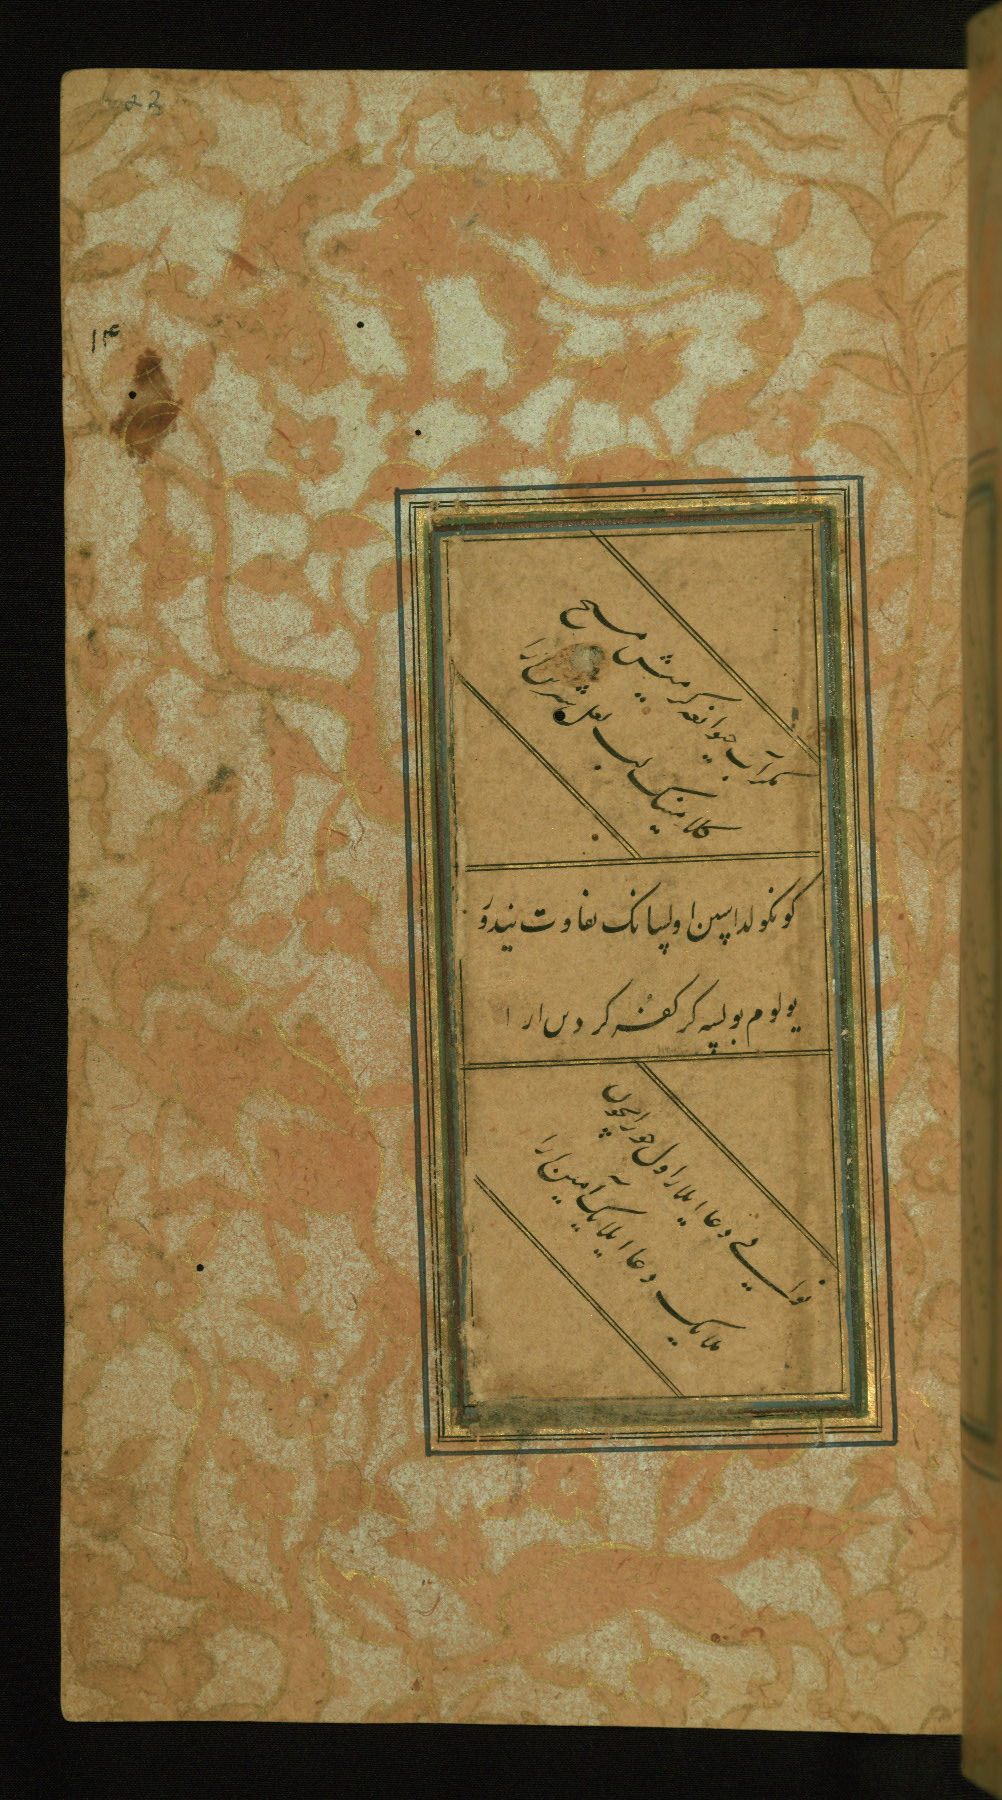 22
۱۴
مکر آب حیوانغه کرمیش مسیح
کلامینک لب لعل شیرین ارا
کونکولداسین اولسانک تفاوت نیدور
یولوم بولسه کر کفر کر دین ارا
نوایی دعا ایلار اول حور ایچون
ملایک دعا آمین ارا